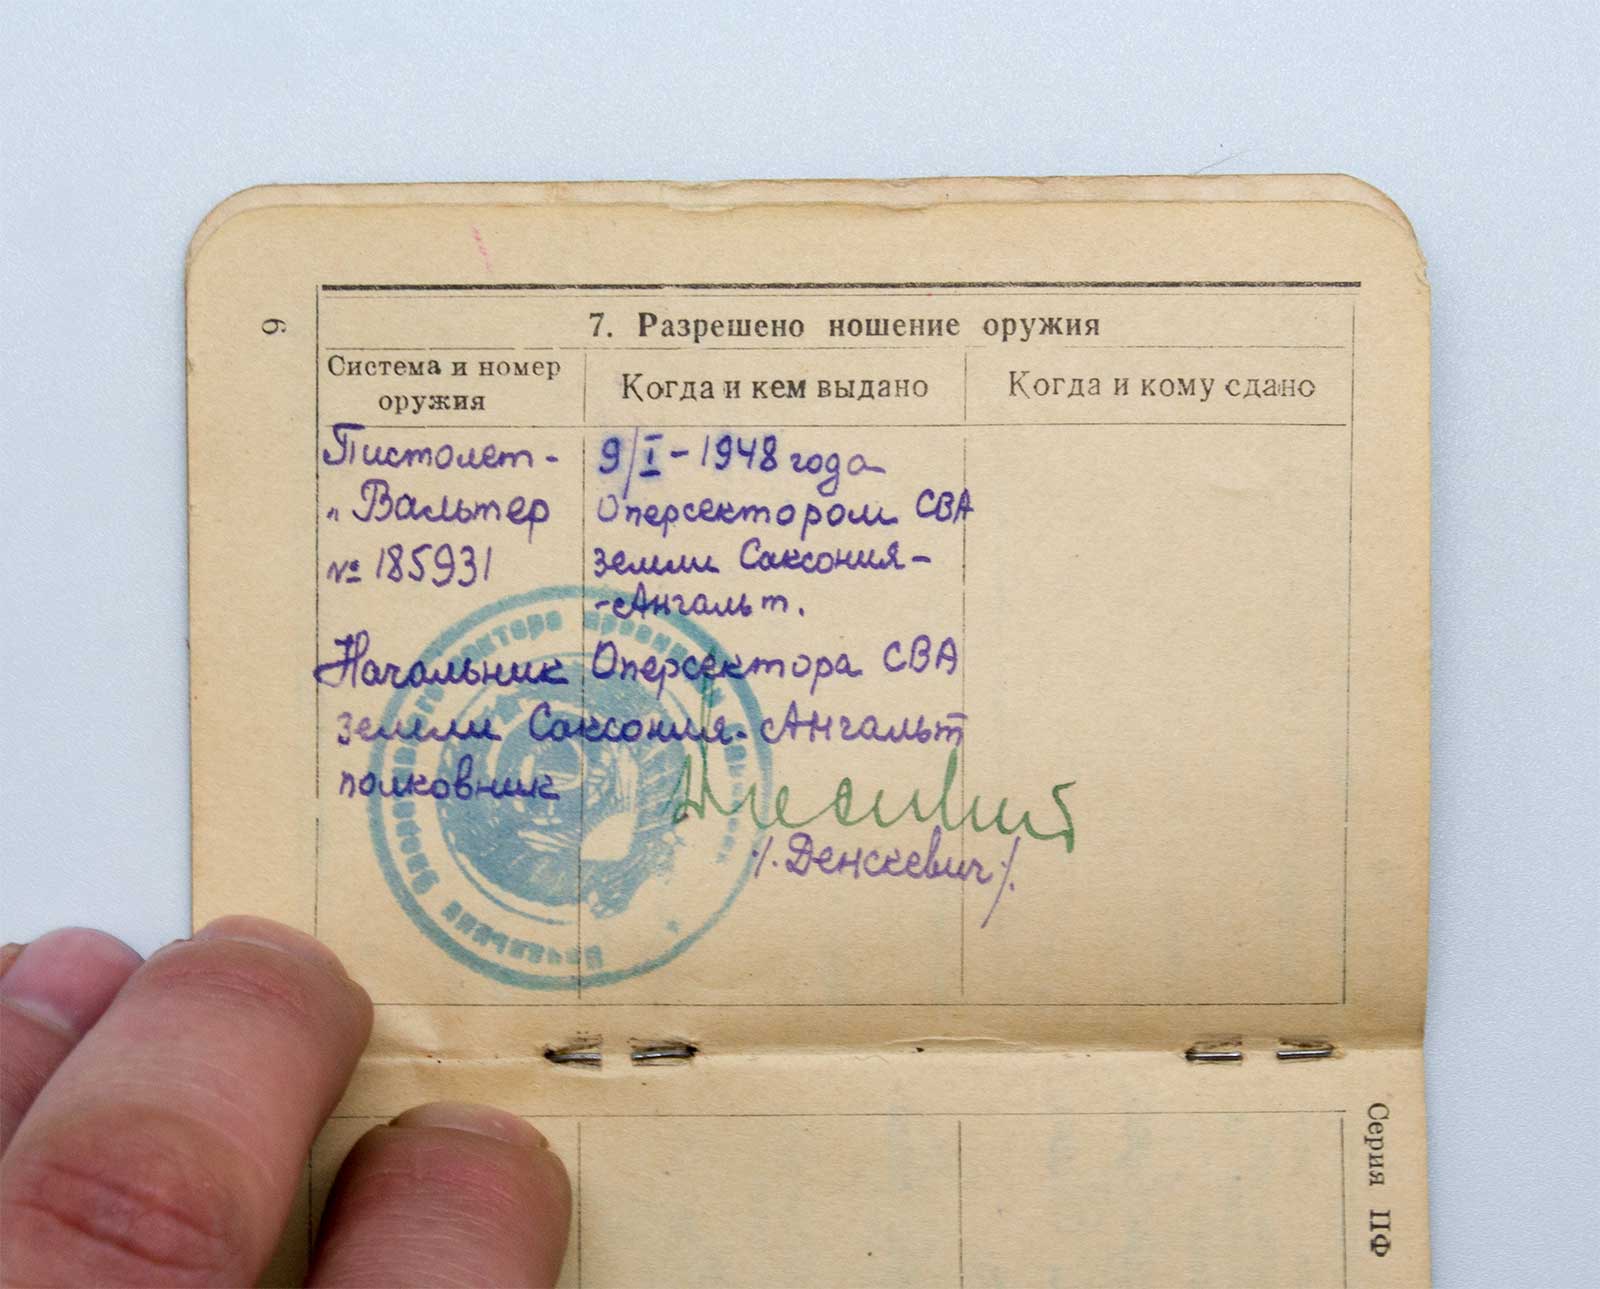 6
7. Разрешено ношение оружия
Система и номер оружия
Когда и кем выдано
Когда и кому сдано
Пистолет -
"Вальтер
№ 185931
9/I - 1948 года
Оперсектором СВА
земли Саксония-
-Ангальт.
Начальник Оперсектора СВА
земли Саксония-Ангальт
полковник
/.Денскевич/.
Серия ПФ